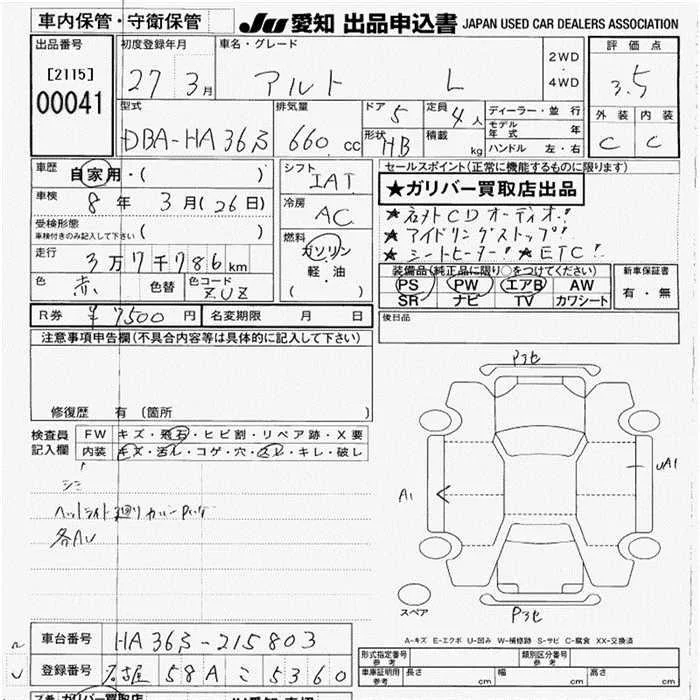 車内保管・守衛保管
JU 愛知 出品申込書 JAPAN USED CAR DEALERS ASSOCIATION
出品番号
[2115]
00041
初度登録年月
27 3月
車名・グレード
アルト L
2WD
・
4WD
評価点
3.5
外装 内装
C C
型式
DBA-HA36S
排気量
660 cc
ドア 5
形状 HB
定員 4人
積載 kg
ディーラー・並行
モデル年式 年
ハンドル 左・右
車歴 自家用・( )
車検 8年 3月(26日)
受検形態
車検付きのみ記入して下さい ( )
走行 3万7千786km
色 赤 色替 色コード ZUZ
シフト IAT
冷房 AC
燃料 ガソリン
軽・油
( )
セールスポイント(正常に機能するものに限ります)
★ガリバー買取店出品
★ CDオーディオ!
★アイドリングストップ!!
★シートヒーター! ★ETC!!
装備品(純正品に限り○をつけてください)
PS PW エアB AW
SR ナビ TV カワシート
新車保証書
有・無
R券 ¥7500円 名変期限 月 日
後日品
注意事項申告欄(不具合内容等は具体的に記入して下さい)
修復歴 有 (箇所 )
検査員記入欄
FW キズ・飛石・ヒビ割・リペア跡・X要
内装 キズ・汚レ・コゲ・穴・スレ・キレ・破レ
シミ
ヘッドライト廻りカバーPキズ
各AU
Pヨセ
A1
UA1
スペア
Pヨセ
A-キズ E-エクボ U-凹み W-補修跡 S-サビ C-腐食 XX-交換済
車台番号 HA36S-215803
登録番号 名古屋 58A こ 5360
形式指定番号 参考
類別区分番号 参考
車庫証明用 参考 長さ cm 幅 cm 高さ cm
ガリバー買取店